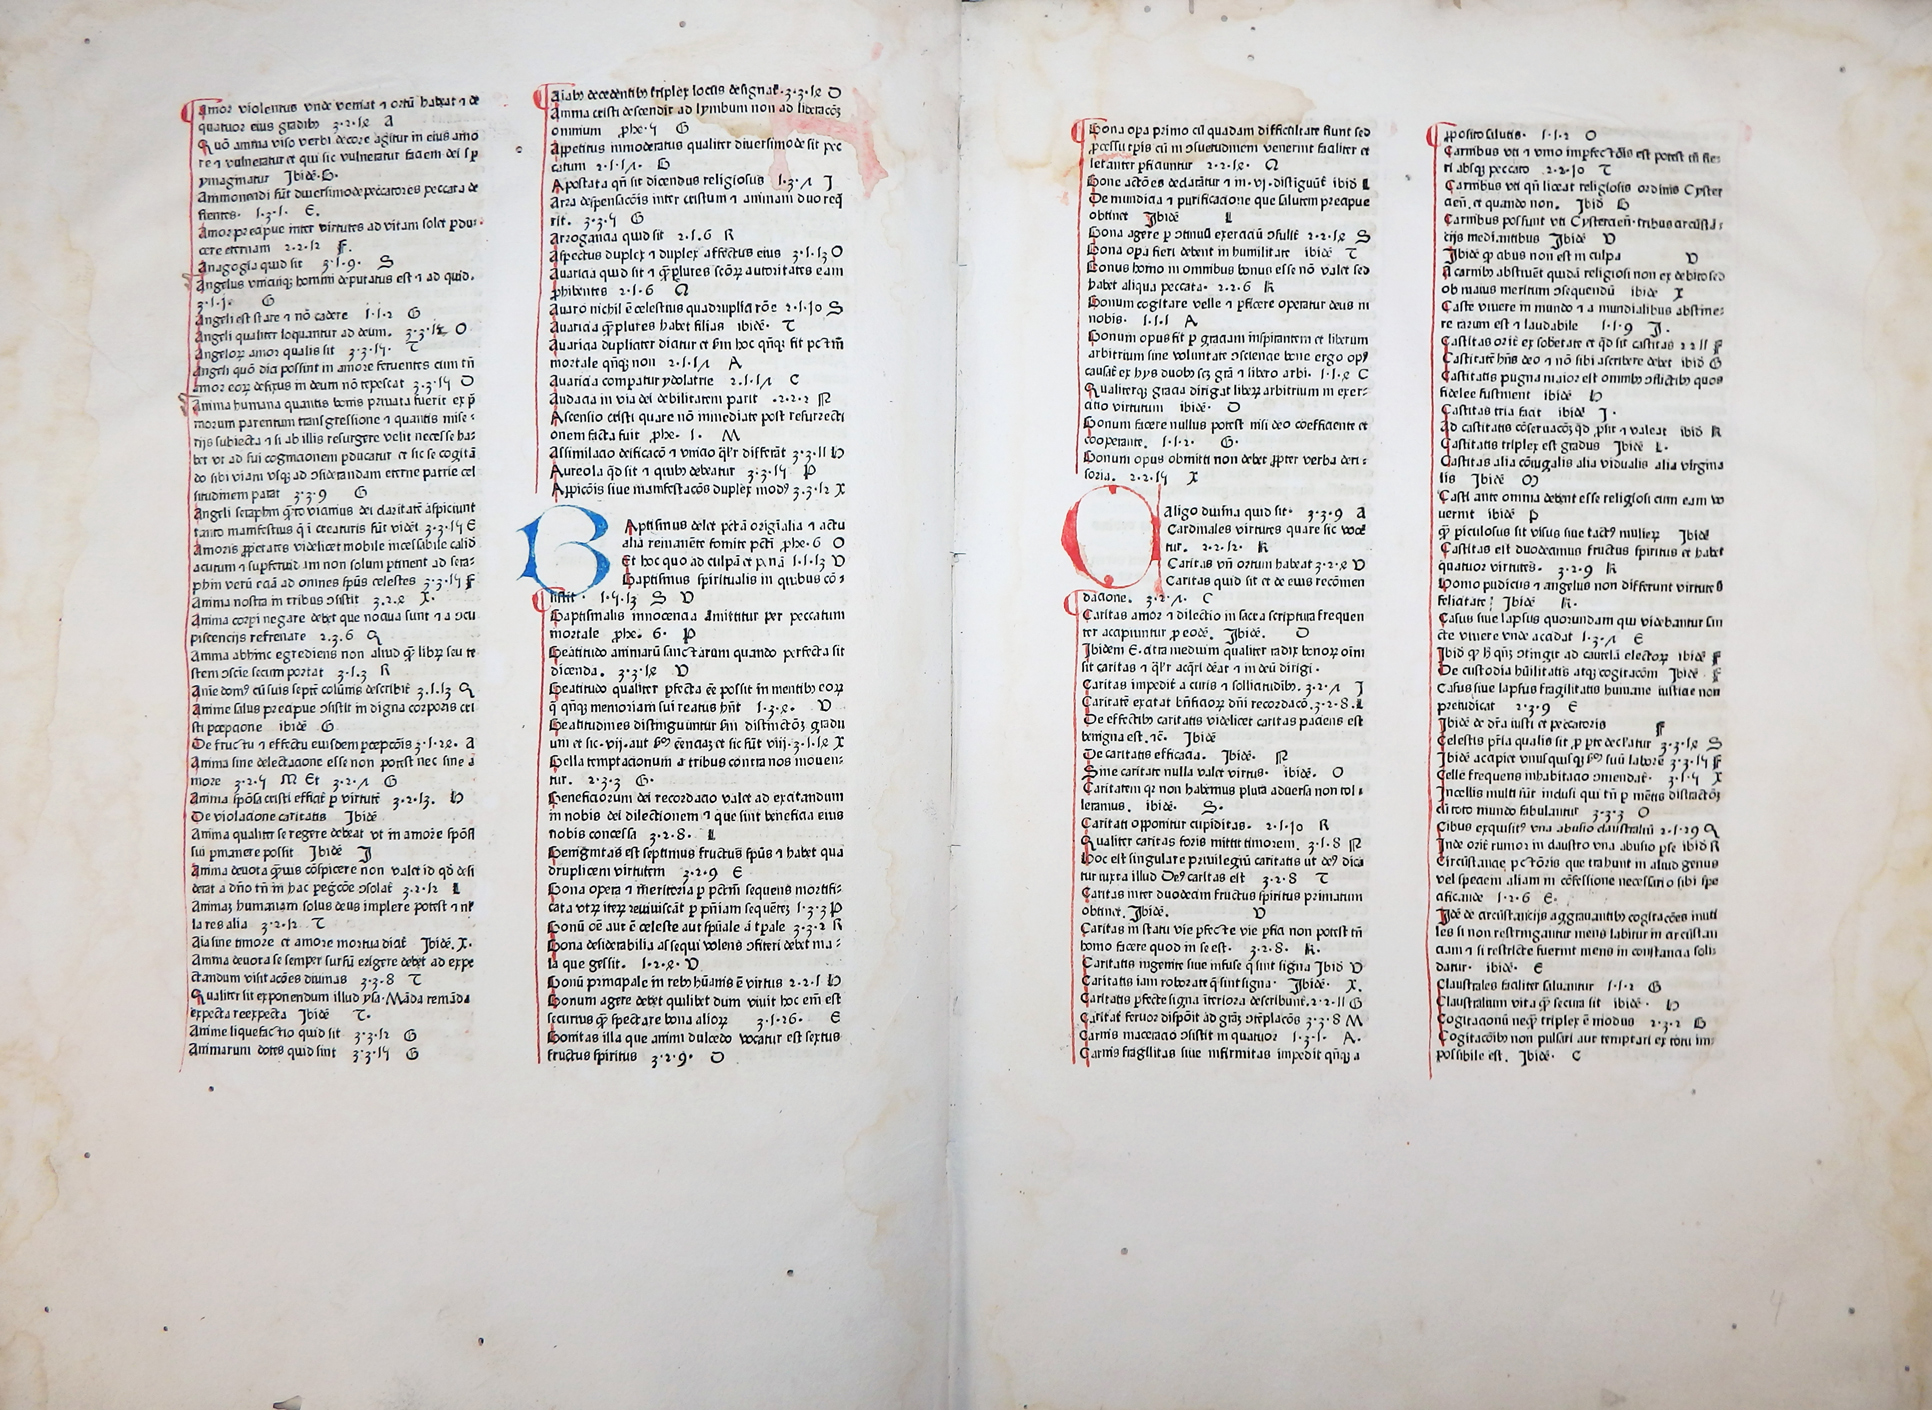 Amor violentus vnde veniat ⁊ ortū habeat ⁊ de
quatuor eius gradibꝫ 3·2·12 A
Quō anima viso verbi decore agitur in eius amo
re ⁊ vulneratur et qui sic vulneratur faciem dei
ymaginatur Ibidē·B·
Ammonendi sūt diuersimode peccatores peccata de
flentes· 1·3·1· E.
Amor precipue inter virtutes ad vitam solet
cere eternam 2·2·12 F.
Anagogia quid sit 3·1·9· S
Angelus vnicuiqꝫ homini deputatus est ⁊ ad quid.
G
Angeli est stare ⁊ nō cadere 1·1·2 G
Angeli qualiter loquantur ad deum. O
Angeloꝝ amor qualis sit 3·3·14· T
Angeli quō dici possint in amore feruentes cum tn̄
amor eoꝝ defixus in deum nō tepescat 3·3·14 O
Anima humana quantis bonis priuata fuerit ex p̄
morum parentum transgressione ⁊ quantis mise-
rijs subiecta ⁊ si ab illis resurgere velit necesse ha-
bet vt ad sui cognicionem ꝓducatur et sic se cogitā
do sibi viam vsqꝫ ad ↄsiderandam eterne patrie cel
situdinem parat 3·3·9 G
Angeli seraphin q̄to viamus dei claritatē aspiciunt
tanto manifestius q̄ ī creaturis fūt vidēt 3·3·14 E
Amoris ꝓprietates videlicet mobile incessabile calid
acutum ⁊ supferuid im non solum ptinent ad sera-
phin verū eciā ad omnes sp̄us celestes 3·3·14 F
Anima nostra in tribus ↄsistit 3·2·2 X·
Anima corpi negare debet que noqua sunt ⁊ a ↄcu
piscencijs refrenare 2·3·6 Q
Anima abhinc egrediens non aliud q̄ libꝝ seu te
stem ↄscīe secum portat 3·1·3 R
Anime domꝰ cū suis septē colūnis describit 3·1·13 Q
Anime salus precipue ↄsistit in digna corporis cri
sti ꝑcepcione ibidē G
De fructu ⁊ effectu eiusdem ꝑcepcōis 3·1·22· A
Anima sine delectacione esse non potest nec sine a
more 3·2·4 M Et 3·2·7 G
Anima spōsa cristi efficit̄ ꝑ virtutē 3·2·13. H
De violacione caritatis Ibidē
Anima qualiter se regere debeat vt in amore spōsi
sui pmanere possit Ibidē J
Anima deuota q̄uis cōspicere non valet id qd̄ desi
derat a dn̄o tn̄ in hac pegͬcōe ↄsolat̄ 3·2·12 L
Animaꝫ humanam solus deus implere potest ⁊ nl̄
la res alia 3·2·12 T
Aīa sine timore et amore mortua dicit̄ Ibidē.X.
Anima deuota se semper sursū erigere debet ad expe
ctandum visitacōes diuinas 3·3·8 T
Qualiter sit exponendum illud ysa·Māda remāda
expecta reexpecta Ibidē T.
Anime liquefactio quid sit 3·3·12 G
Animarum dotes quid sint 3·3·14 G
Aīabꝫ decedentibꝫ triplex locus designat̄·3·3·12 O
Anima cristi descendit ad lymbum non ad liberacōꝫ
omnium ꝓhe·4 G
Appetitus inmoderatus qualiter diuersimode sit pec
catum 2·1·7· B
Apostata qn̄ sit dicendus religiosus 1·3·7 J
Arra despensacōis inter cristum ⁊ animam duo req
rit. 3·3·4 G
Arrogancia quid sit 2·1·6 R
Aspectus duplex ⁊ duplex affectus eius 3·1·13 O
Auaricia quid sit ⁊ q̄ plures scōꝝ autoritates eam
ꝓhibentes 2·1·6 Q
Auaro nichil ē celestius quadruplia rōe 2·1·10 S
Auaricia q̄ plures habet filias ibidē· T
Auaricia dupliciter dicitur et sm̄ hoc qn̄qꝫ fit pctm̄
mortale qn̄qꝫ non 2·1·7 A
Auaricia compatur ydolatrie 2·1·7 C
Audacia in via dei debilitatem parit ·2·2·2 N
Ascensio cristi quare nō inmediate post resurrecti
onem facta fuit ꝓhe· 1· M
Assimilacio deificacō ⁊ vnicio q̄lr̄ differāt 3·3·11 H
Aureola qd̄ sit ⁊ quibꝫ debeatur 3·3·14 P
duplex modꝰ 3·3·12 X
BAptismus delet pctā origīalia ⁊ actu
alia remanēte fomite pcti ꝓhe·6 O
Et hoc quo ad culpā et penā 1·1·13 V
Baptismus spiritualis in quibus cō-
sistit· 1·4·13 S V
Baptismalis innocencia amittitur per peccatum
mortale ꝓhe· 6· P
Beatitudo animarū sanctarum quando perfecta sit
dicenda. 3·3·12 V
Beatitudo qualiter pfecta eē possit in mentibꝫ eoꝝ
q̄ qn̄qꝫ memoriam sui reatus hn̄t 1·3·2· V
Beatitudines distinguūntur sm̄ distinctōꝫ gradu
um et sic·vij·aut et sic fūt viij·3·1·12 X
Bella temptacionum a tribus contra nos mouen-
tur. 2·3·3 G·
Beneficiorum dei recordacio valet ad excitandum
in nobis dei dilectionem ⁊ que sint beneficia eius
nobis concessa 3·2·8· L
Benignitas est septimus fructus sp̄us ⁊ habet qua
druplicem virtutem 3·2·9 E
Bona opera ⁊ meritoria p pctm̄ sequens mortifi-
cata vtꝝ iteꝝ reuiuiscāt p pn̄iam sequētē 1·3·3 P
Bonū oē aut ē celeste aut spūale ā tpale 3·3·2 R
Bona desiderabilia assequi volens ↄfiteri debet ma-
la que gessit. 1·2·2· V
Bonū principale in rebꝫ hūanis ē virtus 2·2·1 H
Bonum agere debet quilibet dum viuit hoc em̄ est
securius q̄ spectare bona alioꝝ 3·1·26· E
Bonitas illa que animi dulcedo vocatur est sextus
fructus spiritus 3·2·9· O
Bona opa primo cū quadam difficultate fiunt sed
ꝓcessu tpis cū in ↄsuetudinem venerint faciliter et
letanter pficiuntur 2·2·12· Q
Bone actōes declarātur ⁊ in·vj·distiguūt̄ ibid L
De mundicia ⁊ purificacione que salutem precipue
obtinet Ibidē L
Bona agere p ↄtinuū exerciciū ↄsulit̄ 2·2·12 S
Bona opa fieri debent in humilitate ibidē T
Bonus homo in omnibus bonus esse nō valet sed
habet aliqua peccata· 2·2·6 R
Bonum cogitare velle ⁊ pficere operatur deus in
nobis· 1·1·1 A
Bonum opus fit p graciam inspirantem et liberum
arbitrium sine voluntate ↄsciencie bone ergo opꝰ
causat̄ ex hys duobꝫ scꝫ grā ⁊ libero arbi· 1·1·2 C
Qualiterqꝫ gracia dirigat libeꝝ arbitrium in exer-
cicio virtutum ibidē· O
Bonum facere nullus potest nisi deo coefficiente et
cooperante. 1·1·2· G·
Bonum opus obmitti non debet ꝓpter verba deri-
soria. 2·2·14 X
CAligo diuina quid sit· 3·3·9 A
Cardinales virtutes quare sic vocē
tur. 2·2·12· R
Caritas vn̄ ortum habeat 3·2·2 V
Caritas quid sit et de eius recōmen
dacione. 3·2·7· C
Caritas amor ⁊ dilectio in sacra scriptura frequen
ter acipiuntur p eodē. Ibidē. O
Ibidem E·circa medium qualiter radix bonoꝝ oīm
sit caritas ⁊ q̄lr̄ acq̄ri deāt ⁊ in deū dirigi·
Caritas impedit̄ a curis ⁊ sollicitudibꝫ. 3·2·7 J
Caritatē excitat bn̄ficioꝝ dn̄i recordacō. 3·2·8·L
De effectibꝫ caritatis videlicet caritas paciens est
benigna est. ⁊c̄. Ibidē
De caritatis efficacia. Ibidē. N
Sine caritate nulla valet virtus· ibidē. O
Caritatem qr non habemus plura aduersa non tol-
leramus. ibidē. S·
Caritati opponitur cupiditas. 2·1·10 R
Qualiter caritas foris mittit timorem. 3·1·8 N
Hoc est singulare priuilegiū caritatis ut deꝰ dica
tur iuxta illud Deꝰ caritas est 3·2·8 T
Caritas inter duodecim fructus spiritus primatum
obtinet. Ibidē. V
Caritas in statu vie pfecte vie pfici non potest tn̄
homo facere quod in se est. 3·2·8. R.
Caritatis ingenite siue infuse q̄ sint signa Ibid V
Caritatis iam roborate q̄ sint signa· Ibidē· X.
Caritatis pfecte signa īteriora describunt̄·2·2·11 G
Caritat̄ feruor dispōit ad grāꝫ ↄtēplacōs 3·3·8 M
Carnis maceracio ↄsistit in quatuor 1·3·1· A.
Carnis fragilitas siue infirmitas impedit qn̄qꝫ a
ꝓposito salutis· 1·1·2 O
Carnibus vti ⁊ vino impfectōis est potest tn̄ fie-
ri absqꝫ peccato ·2·2·10 T
Carnibus vti qn̄ liceat religiosis ordinis Cyster
cien̄. et quando non. Ibid B
Carnibus possunt vti Cystercien̄·tribus arcūsta-
cijs mediantibus Ibidē V
Ibidē qͥ abus non est in culpa V
A carnibꝫ abstinēt quidā religiosi non ex debito sed
ob maius meritum ↄsequendū ibidē X
Caste viuere in mundo ⁊ a mundialibus abstine-
re rarum est ⁊ laudabile 1·1·9 J.
Castitas orit̄ ex sobrietate et qd̄ sit castitas 2 2 11 F
Castitatē hn̄s deo ⁊ nō sibi ascribere debet ibid G
Castitatis pugna maior est omnibꝫ ↄflictibꝫ quos
fideles sustinent ibidē H
Castitas tria facit ibidē J·
Ad castitatis cōseruacōꝫ qd ꝓsit ⁊ valeat ibid K
Castitatis triplex est gradus Ibidē L·
Castitas alia cōiugalis alia vidualis alia virgina
lis Ibidē M
Casti ante omnia debent esse religiosi cum eam vo
uerint ibidē P
q̄ piculosus sit visus siue tactꝰ mulieꝝ Ibidē
Castitas est duodecimus fructus spiritus et habet
quatuor virtutes· 3·2·9 R
Homo pudicus ⁊ angelus non differunt virtute
felicitate Ibidē R·
Casus siue lapsus quorundam qui videbantur san
cte viuere vnde accidat 1·3·7 E
Ibid ↄtingit ad cautelā electoꝝ ibidē F
De custodia hūilitatis atqꝫ cogitacōm Ibidē F
Casus siue lapsus fragilitatis humane iusticie non
preiudicat 2·3·9 E
Ibidē de dr̄a iusti et peccatoris F
Celestis pr̄ia qualis sit 3·3·12 S
Ibidē acipiet vnusquisqꝫ suū labore 3·3·14 F
Celle frequens inhabitacio ↄmendat̄· 3·1·4 X
In cellis multi sūt inclusi qui tn̄ p mētis distractōꝫ
cū toto mundo fabulantur 3·3·3 O
Cibus exquisitꝰ vna abusio claustraliū 2·1·29 Q
Inde orit̄ rumor in claustro vna abusio pse ibid R
Circūstancie pctōris que trahunt in aliud genus
vel speciem aliam in cōfessione necessario sibi spe
cificande 1·2·6 E·
Idē de circūstancijs aggrauantibꝫ cogitacōes inuti
les si non restringantur mens labitur in circūstan
ciam ⁊ si restricte fuerint mens in constancia soli-
datur· ibidē. E
Claustrales faciliter saluantur 1·1·2 G
Claustralium vita q̄ secura sit ibidē· H
Cogitacionū neqꝫ triplex ē modus 2·3·2 B
Cogitacōibꝫ non pulsari aut temptari ex toto im-
possibile est. Ibidē· C
4